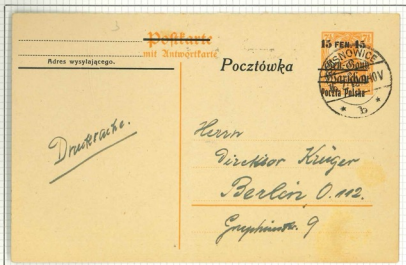 3
Postkarte
mit Antwortkarte
Adres wysyłającego.
Pocztówka
15 FEN. 15
Gen.-Gouv.
Warschau
Poczta Polska
SOSNOWICE
* b *
Drucksache.
Herrn
Direktor Krüger
Berlin, O. 112.
9